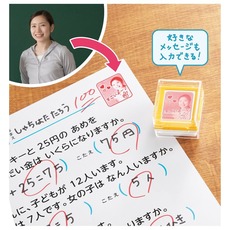 好きな
メッセージも
入力できる！
しゃちはた たろう 100
キーと 25円の あめを
だい金は いくらになりますか。
+25=75 こたえ（75円）
に、子どもが 12人います。
は 7人です。女の子は なん人いますか。
こたえ（5人）
ありますか。